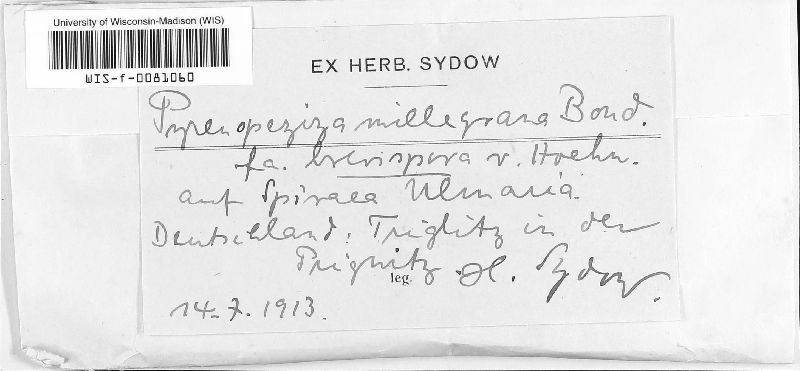 University of Wisconsin-Madison (WIS)
WIS-f-0081060
EX HERB. SYDOW
Pyrenopeziza millegrana Boud.
fa. brevispora v. Hoehn.
auf Spiraea Ulmaria.
Deutschland: Triglitz in der
Prignitz
leg. H. Sydow.
14.7.1913.